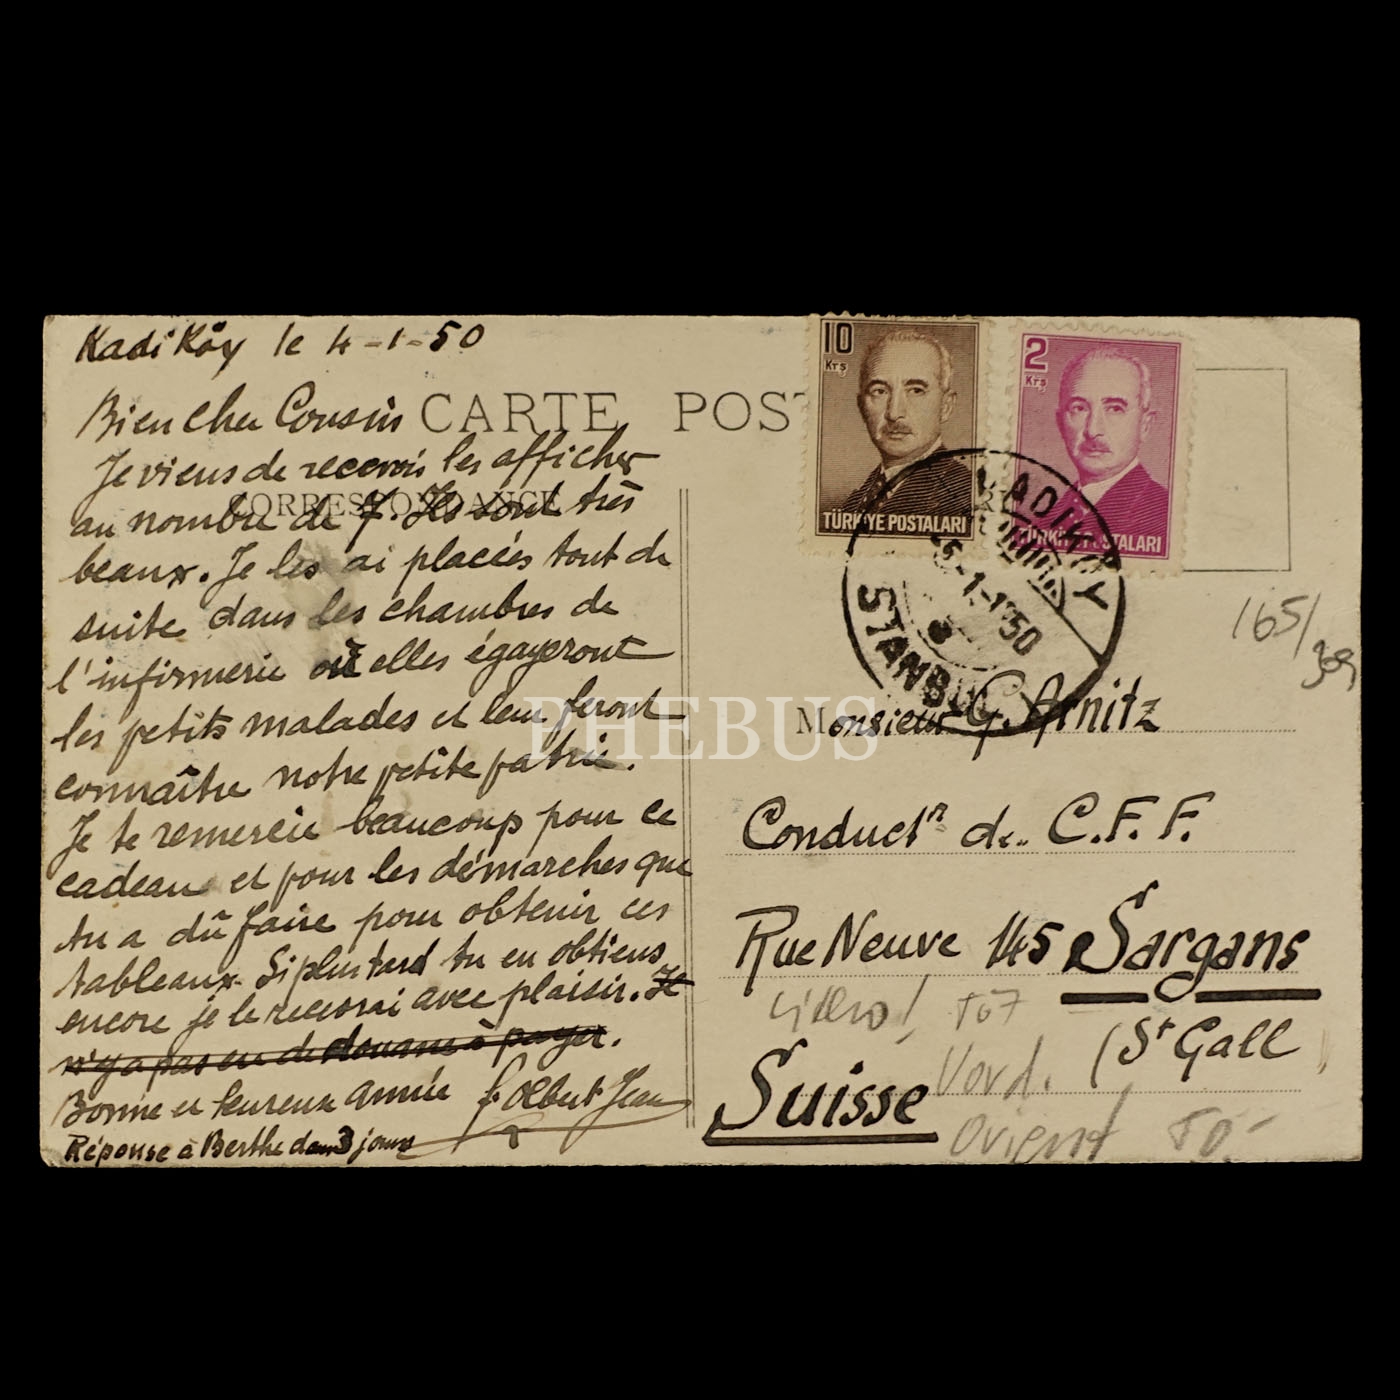 Kadi Köy le 4-1-50
CARTE POST
CORRESPONDANCE
Bien cher Cousin
Je viens de recevoir les affiches
au nombre de 7. Ils sont très
beaux. Je les ai placées tout de
suite dans les chambres de
l'infirmerie où elles égayeront
les petits malades et leur feront
connaître notre petite patrie.
Je te remercie beaucoup pour ce
cadeau et pour les démarches que
tu a dû faire pour obtenir ces
tableaux. Si plus tard tu en obtiens
encore je le recevrai avec plaisir. Il
n'y a pas eu de douane à payer.
Bonne et heureuse année f. Albert Jean
Réponse à Berthe dans 3 jours
10
Krş
TÜRKİYE POSTALARI
2
Krş
TÜRKİYE POSTALARI
KADIKÖY
-1-1950
STANBUL
165/
309
PHEBUS
Monsieur G. Arnitz
Conductr de C.F.F.
Rue Neuve 145 Sargans
(St Gall
Suisse
Vord.
Orient 50.-